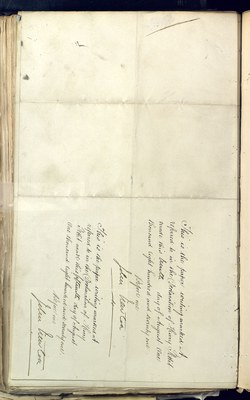 This is the paper writing marked A
referred to in the Declaration of Henry Field
made this Twelfth day of August One
thousand eight hundred and seventy one
Before me
John Newton
This is the paper writing marked A
referred to in the Declaration of Henry
Field made this fifteenth day of August
One thousand eight hundred and seventy one
Before me
John Newton